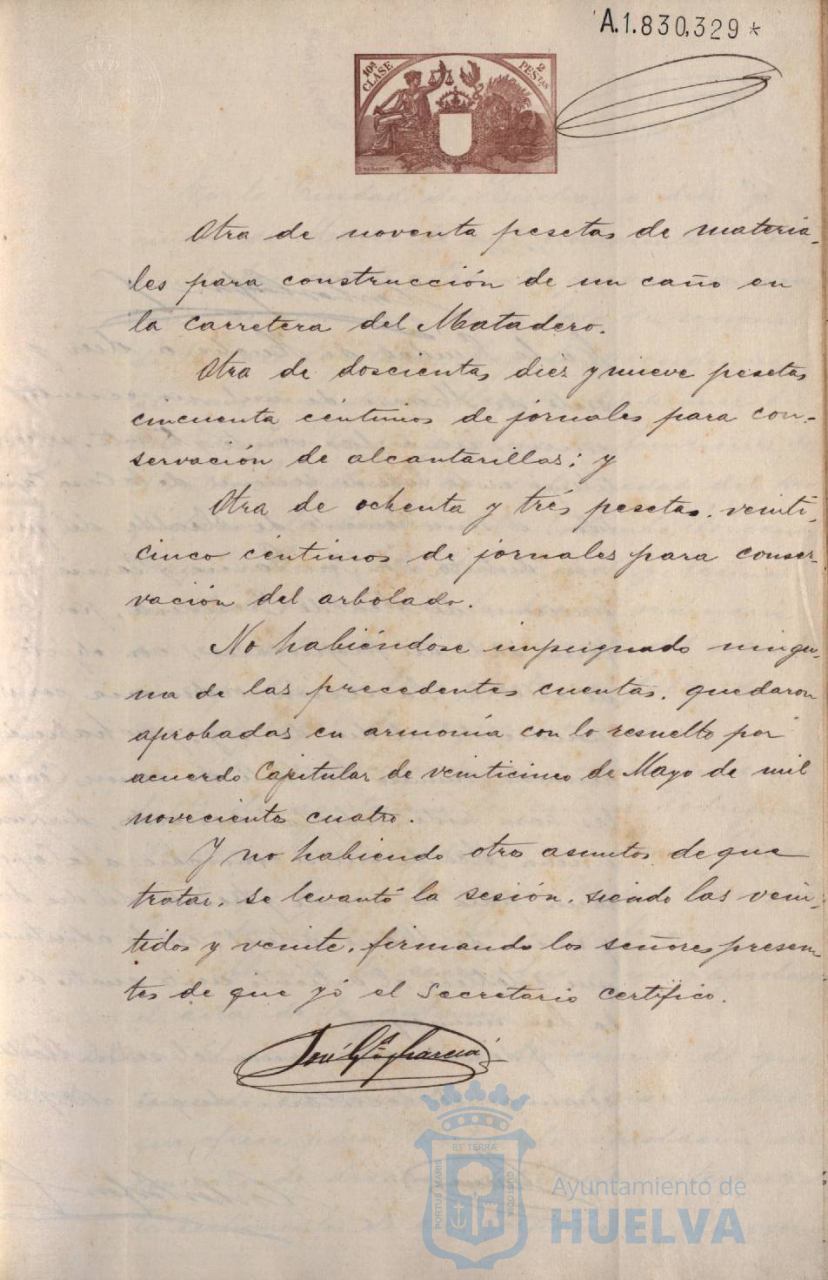 A.1.830,329 *
10ª CLASE
2 PESETAS
Otra de noventa pesetas de materia-
les para construcción de un caño en
la carretera del Matadero.
Otra de doscientas diez y nueve pesetas
cincuenta céntimos de jornales para con-
servación de alcantarillas; y
Otra de ochenta y trés pesetas, veinti-
cinco céntimos de jornales para conser-
vación del arbolado.
No habiéndose impugnado ningu-
na de las precedentes cuentas, quedaron
aprobadas en armonía con lo resuelto por
acuerdo Capitular de veinticinco de Mayo de mil
novecientos cuatro.
Y no habiendo otros asuntos de que
tratar, se levantó la sesión, siendo las vein-
tidos y veinte, firmando los señores presen-
tes de que yó el Secretario certifico.
José García
PORTUS MARIS
ET TERRÆ
CUSTODIA
Ayuntamiento de
HUELVA